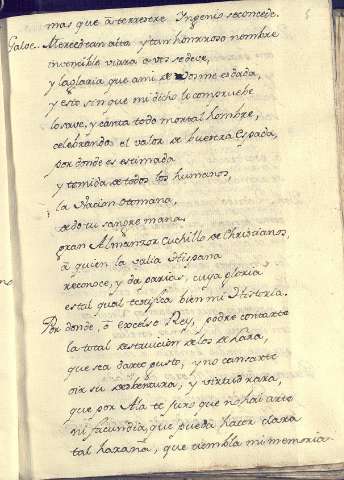 mas que à terrestre Ingenio se concede.
Galbe. Merced tan alta y tan honrroso nombre
invencible a vos se deve,
y la gloria que a mi se me es dada,
y esto sin que mi dicho lo compruebe
lo save, y canta todo mortal hombre,
celebrando el valor de buestra Espada,
por donde es estimada
y temida de todos los humanos,
la Nacion otomana,
do tu sangre mana.
gran Almanzor Cuchillo de Christianos,
à quien la valia Hispana
reconoce, y da parias, cuya gloria
es tal qual testifica bien mi Historia.
Por donde, ò excelso Rey, podre contarte
la total destruicion de los de Lara,
que sea darte gusto, y no cansarte
oir su desbentura, y virtud rara,
que por Ala te juro que no hai arte
ni facundia, que pueda hacer clara
tal hazaña, que tiembla mi memoria
5